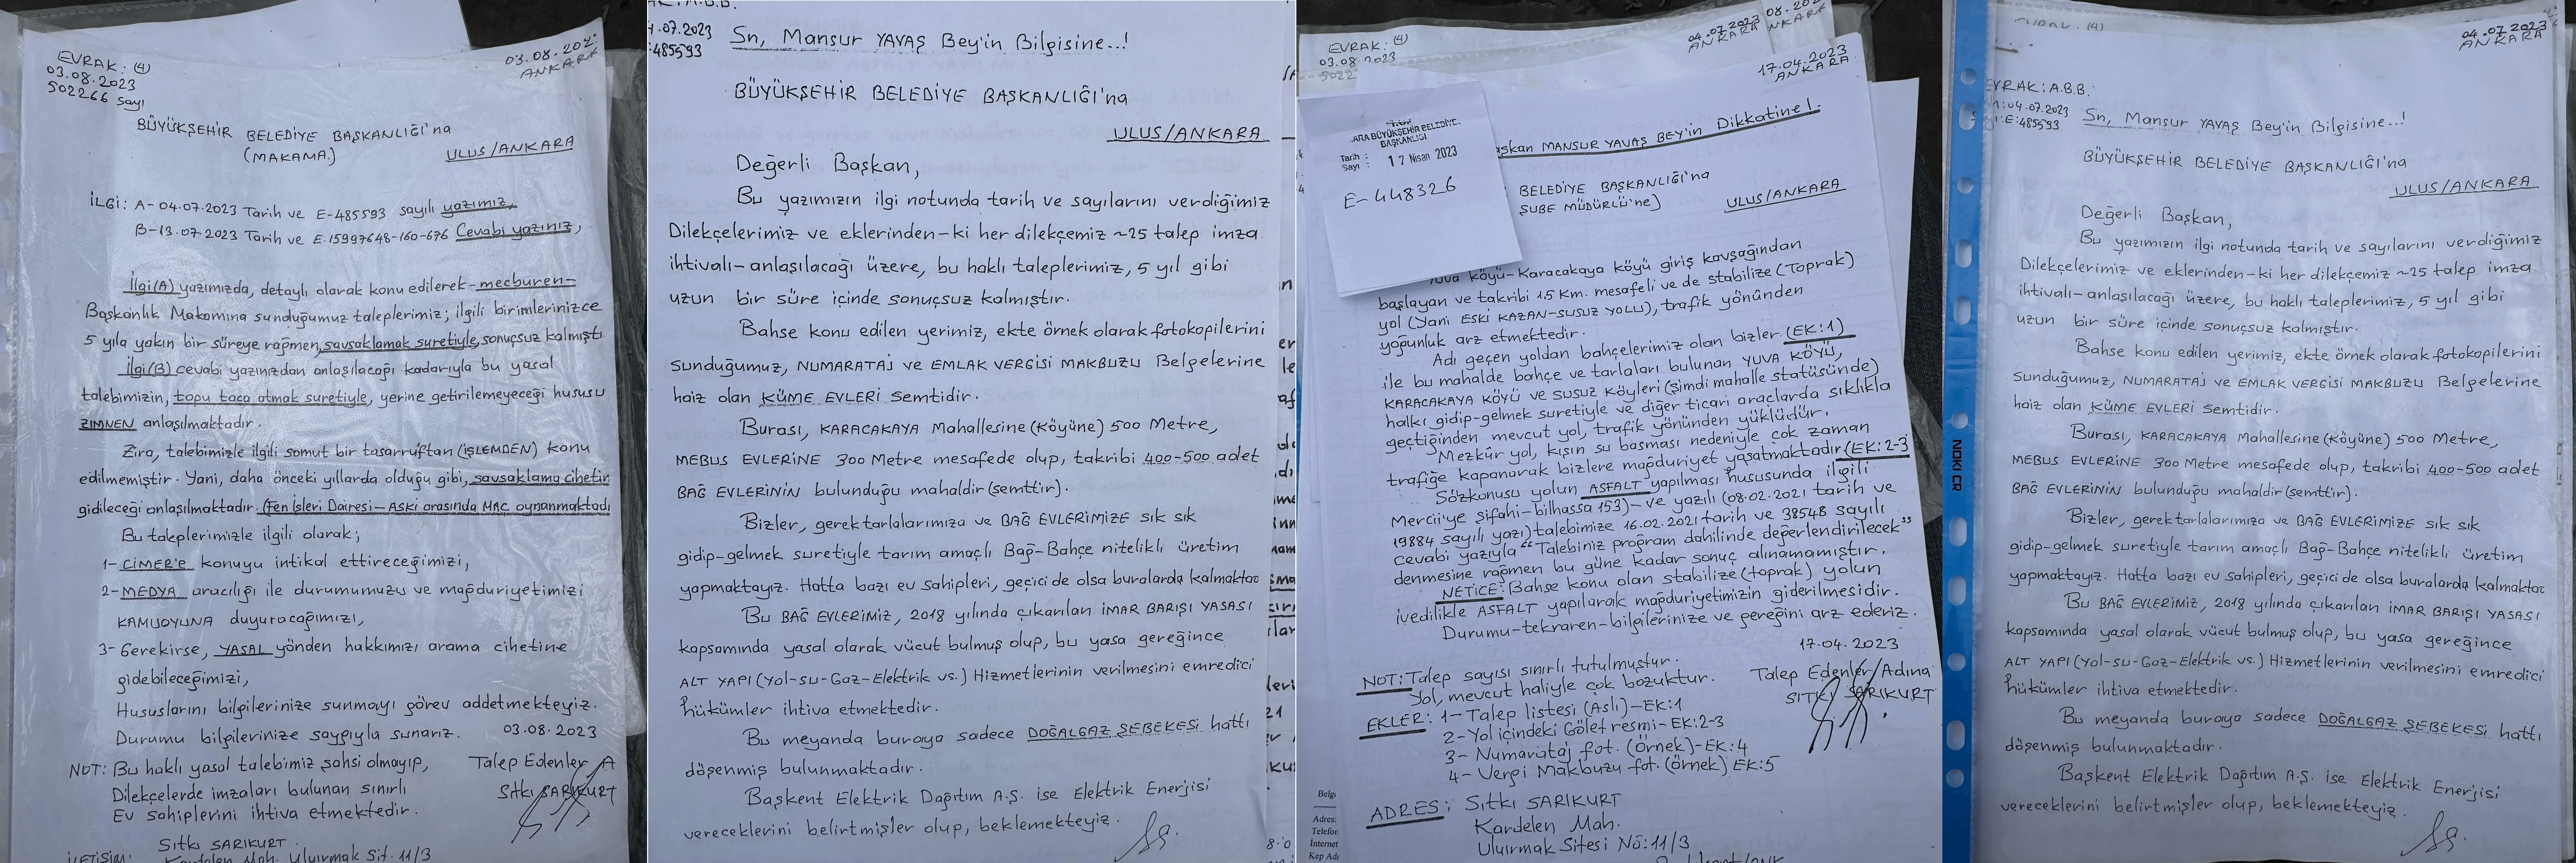 EVRAK: (4)
03.08.2023
502266 sayı
03.08.202
ANKARA
BÜYÜKŞEHİR BELEDİYE BAŞKANLIĞI'na
(MAKAMA)
ULUS/ANKARA
İLGİ: A- 04.07.2023 Tarih ve E-485593 sayılı yazımız,
B-13.07.2023 Tarih ve E.15997648-160-676 Cevabi yazınız,
İlgi(A) yazımızda, detaylı olarak konu edilerek-mecburen-
Başkanlık Makamına sunduğumuz taleplerimiz; ilgili birimlerinizce
5 yıla yakın bir süreye rağmen, savsaklamak suretiyle, sonuçsuz kalmıştı
İlgi(B) cevabi yazınızdan anlaşılacağı kadarıyla bu yasal
talebimizin, topu taca atmak suretiyle, yerine getirilemeyeceği hususu
ZIMNEN anlaşılmaktadır.
Zira, talebimizle ilgili somut bir tasarruftan (İŞLEMDEN) konu
edilmemiştir. Yani, daha önceki yıllarda olduğu gibi, savsaklama cihetin
gidileceği anlaşılmaktadır. (Fen İşleri Dairesi-ASKİ arasında MAÇ oynanmaktadı
Bu taleplerimizle ilgili olarak;
1- CİMER'e konuyu intikal ettireceğimizi,
2- MEDYA aracılığı ile durumumuzu ve mağduriyetimizi
KAMUOYUNA duyuracağımızı,
3- Gerekirse, YASAL yönden hakkımızı arama cihetine
gidebileceğimizi,
Hususlarını bilgilerinize sunmayı görev addetmekteyiz.
Durumu bilgilerinize saygıyla sunarız. 03.08.2023
NOT: Bu haklı yasal talebimiz şahsi olmayıp, Talep Edenler A
Dilekçelerde imzaları bulunan sınırlı Sıtkı SARIKURT
Ev sahiplerini ihtiva etmektedir.
Sıtkı SARIKURT
İLETİŞİM: Kardelen Mah. Uluırmak Sit. 11/3
.07.2023
:485593
Sn, Mansur YAVAŞ Bey'in Bilgisine...!
BÜYÜKŞEHİR BELEDİYE BAŞKANLIĞI'na
ULUS/ANKARA
Değerli Başkan,
Bu yazımızın ilgi notunda tarih ve sayılarını verdiğimiz
Dilekçelerimiz ve eklerinden-ki her dilekçemiz ~25 talep imza
ihtivalı-anlaşılacağı üzere, bu haklı taleplerimiz, 5 yıl gibi
uzun bir süre içinde sonuçsuz kalmıştır.
Bahse konu edilen yerimiz, ekte örnek olarak fotokopilerini
sunduğumuz, NUMARATAJ ve EMLAK VERGİSİ MAKBUZU Belgelerine
haiz olan KÜME EVLERİ semtidir.
Burası, KARACAKAYA Mahallesine (Köyüne) 500 Metre,
MEBUS EVLERİNE 300 Metre mesafede olup, takribi 400-500 adet
BAĞ EVLERİNİN bulunduğu mahaldir (semttir).
Bizler, gerek tarlalarımıza ve BAĞ EVLERİMİZE sık sık
gidip-gelmek suretiyle tarım amaçlı Bağ-Bahçe nitelikli üretim
yapmaktayız. Hatta bazı ev sahipleri, geçici de olsa buralarda kalmaktad
Bu BAĞ EVLERİMİZ, 2018 yılında çıkarılan İMAR BARIŞI YASASI
kapsamında yasal olarak vücut bulmuş olup, bu yasa gereğince
ALT YAPI (Yol-su-Gaz-Elektrik vs.) Hizmetlerinin verilmesini emredici
hükümler ihtiva etmektedir.
Bu meyanda buraya sadece DOĞALGAZ ŞEBEKESİ hattı
döşenmiş bulunmaktadır.
Başkent Elektrik Dağıtım A.Ş. ise Elektrik Enerjisi
vereceklerini belirtmişler olup, beklemekteyiz.
EVRAK: (4)
03.08.2023
5022
04.07.2023
ANKARA
08.202
ANKARA
17.04.2023
ANKARA
ARA BÜYÜKŞEHİR BELEDİYE
BAŞKANLIĞI
Tarih : 17 Nisan 2023
Sayı :
E-448326
aşkan MANSUR YAVAŞ BEY'in Dikkatine!.
BELEDİYE BAŞKANLIĞI'na
ŞUBE MÜDÜRLÜ'ne)
ULUS/ANKARA
Yuva Köyü-Karacakaya köyü giriş kavşağından
başlayan ve takribi 1.5 Km. mesafeli ve de stabilize (Toprak)
yol (Yani ESKİ KAZAN-SUSUZ YOLU), trafik yönünden
yoğunluk arz etmektedir.
Adı geçen yoldan bahçelerimiz olan bizler (EK:1)
ile bu mahalde bahçe ve tarlaları bulunan YUVA KÖYÜ,
KARACAKAYA KÖYÜ ve SUSUZ KÖYLERİ (Şimdi mahalle statüsünde)
halkı gidip-gelmek suretiyle ve diğer ticari araçlarda sıklıkla
geçtiğinden mevcut yol, trafik yönünden yüklüdür.
Mezkûr yol, kışın su basması nedeniyle çok zaman
trafiğe kapanarak bizlere mağduriyet yaşatmaktadır (EK: 2-3
Sözkonusu yolun ASFALT yapılması hususunda ilgili
Mercii'ye şifahi-bilhassa 153)-ve yazılı (08.02.2021 tarih ve
19884 sayılı yazı) talebimize 16.02.2021 tarih ve 38548 sayılı
cevabi yazıyla "Talebiniz program dahilinde değerlendirilecek"
denmesine rağmen bu güne kadar sonuç alınamamıştır.
NETİCE: Bahse konu olan stabilize (toprak) yolun
ivedilikle ASFALT yapılarak mağduriyetimizin giderilmesidir.
Durumu-tekraren-bilgilerinize ve gereğini arz ederiz.
17.04.2023
NOT: Talep sayısı sınırlı tutulmuştur. Talep Edenler/Adına
Yol, mevcut haliyle çok bozuktur. SITKI SARIKURT
EKLER: 1- Talep listesi (Aslı)-EK:1
2-Yol içindeki Gölet resmi-EK:2-3
3- Numarataj fot. (Örnek)-EK:4
4- Vergi Makbuzu fot. (örnek) EK:5
ADRES: Sıtkı SARIKURT
Kardelen Mah.
Uluırmak Sitesi Nö:11/3
Adres:
Telefon
İnternet
Kep Adr
04.07.2023
ANKARA
EVRAK: A.B.B.
:04.07.2023
:E:485593
Sn, Mansur YAVAŞ Bey'in Bilgisine...!
BÜYÜKŞEHİR BELEDİYE BAŞKANLIĞI'na
ULUS/ANKARA
Değerli Başkan,
Bu yazımızın ilgi notunda tarih ve sayılarını verdiğimiz
Dilekçelerimiz ve eklerinden-ki her dilekçemiz ~25 talep imza
ihtivalı-anlaşılacağı üzere, bu haklı taleplerimiz, 5 yıl gibi
uzun bir süre içinde sonuçsuz kalmıştır.
Bahse konu edilen yerimiz, ekte örnek olarak fotokopilerini
sunduğumuz, NUMARATAJ ve EMLAK VERGİSİ MAKBUZU Belgelerine
haiz olan KÜME EVLERİ semtidir.
Burası, KARACAKAYA Mahallesine (Köyüne) 500 Metre,
MEBUS EVLERİNE 300 Metre mesafede olup, takribi 400-500 adet
BAĞ EVLERİNİN bulunduğu mahaldir (semttir).
Bizler, gerek tarlalarımıza ve BAĞ EVLERİMİZE sık sık
gidip-gelmek suretiyle tarım amaçlı Bağ-Bahçe nitelikli üretim
yapmaktayız. Hatta bazı ev sahipleri, geçici de olsa buralarda kalmaktad
Bu BAĞ EVLERİMİZ, 2018 yılında çıkarılan İMAR BARIŞI YASASI
kapsamında yasal olarak vücut bulmuş olup, bu yasa gereğince
ALT YAPI (Yol-su-Gaz-Elektrik vs.) Hizmetlerinin verilmesini emredici
hükümler ihtiva etmektedir.
Bu meyanda buraya sadece DOĞALGAZ ŞEBEKESİ hattı
döşenmiş bulunmaktadır.
Başkent Elektrik Dağıtım A.Ş. ise Elektrik Enerjisi
vereceklerini belirtmişler olup, beklemekteyiz.